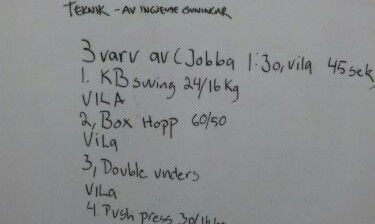 TEKNIK - AV INGÅENDE ÖVNINGAR
3 varv av (Jobba 1:30, vila 45 sek)
1. KB swing 24/16 kg
VILA
2, Box Hopp 60/50
Vila
3, Double unders
Vila
4 Push press 30/